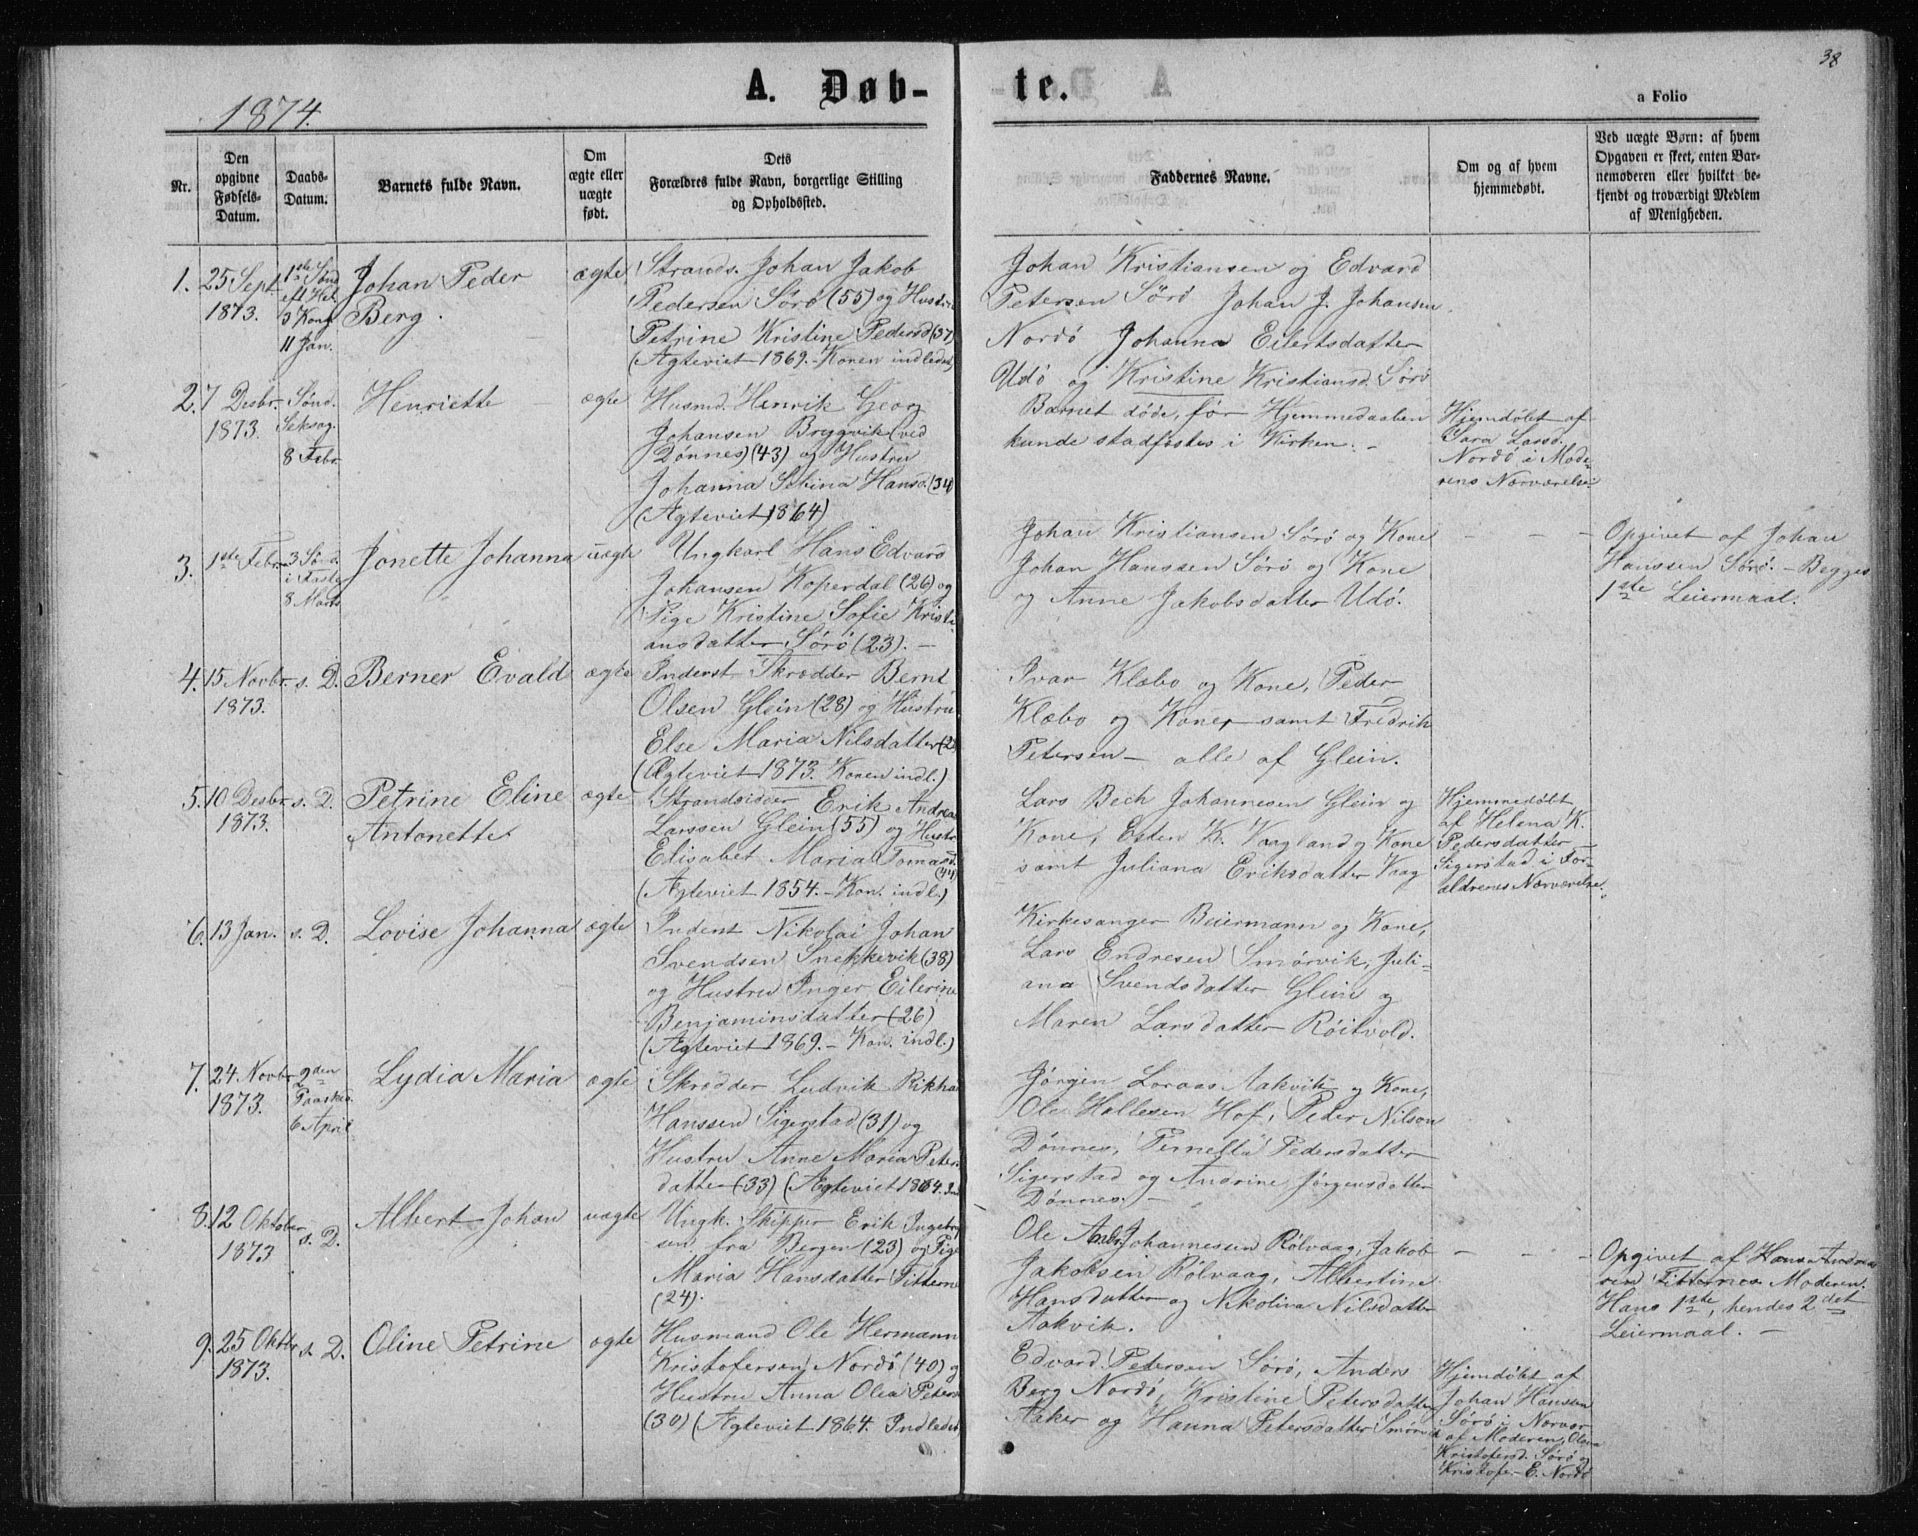 38
A. Døb-
te.
a Folio
1874.
Nr.
Den
opgivne
Fødsels-
Datum.
Daabs-
Datum.
Barnets fulde Navn.
Om
ægte eller
uægte
født.
Dets
Forældres fulde Navn, borgerlige Stilling
og Opholdssted.
Faddernes Navne.
Om og af hvem
hjemmedøbt.
Ved uægte Børn: af hvem
Opgaven er skeet, enten Bar-
nemoderen eller hvilket be-
kjendt og troværdigt Medlem
af Menigheden.
1.
25 Sept
1873.
1ste Sønd
eft Hel
3 Kong
11 Jan.
Johan Peder
Berg.
ægte
Strands. Johan Jakob
Pedersen Sørø (55) og Hustru
Petrine Kristine Pedersd (37)
(Ægteviet 1869. - Konen indledet
Johan Kristiansen og Edvard
Petersen Sørø Johan J. Johansen
Nordø Johanna Eilertsdatter
Udø og Kristine Kristiansd. Sørø
2.
7 Desbr.
1873.
Sønd.
Seksag.
8 Febr
Henriette
ægte
Husmd. Henrik Georg
Johansen Bryggvik (ved
Dønnes) (43) og Hustru
Johanna Hansd. (34)
(Ægteviet 1864)
Barnet døde, før Hjemmedaaben
kunde stadfæstes i Kirken. -
Hjemdøbt af
Sara Larsd.
Nordø i Mode-
rens Nærværelse
3.
1ste Febr
3 Sønd.
i Faste
8 Marts
Jonette Johanna
uægte
Ungkarl Hans Edvard
Johansen Koperdal (26) og
Pige Kristine Sofie Kristi-
ansdatter Sørø (23). -
Johan Kristiansen Sørø og Kone
Johan Hanssen Sørø og Kone
og Anne Jakobsdatter Udø.
- - -
Opgivet af Johan
Hanssen Sørø. - Begges
1ste Leiermaal.
4.
15 Novbr.
1873.
s. D.
Berner Evald
ægte
Inderst Skrædder Bernt
Olsen Glein (28) og Hustru
Else Maria Nilsdatter
(Ægteviet 1873. Konen indl.)
Ivar Klæbo og Kone, Peder
Klæbo og Kone, samt Fredrik
Petersen - alle af Glein.
5.
10 Desbr
1873.
s. D.
Petrine Eline
Antonette
ægte
Strandsidder Erik Andreas
Larssen Glein (55) og Hustr
Elisabet Maria Tomasd.
(44)
(Ægteviet 1854. - Kon. indl.)
Lars Bech Johannesen Glein og
Kone, Esten K. Vaagland og Kone
samt Juliana Eriksdatter Vaag
Hjemmedøbt
af Helena K.
Pedersdatter
Sigerstad i For-
ældrenes Nærværelse.
6.
13 Jan.
s. D.
Lovise Johanna
ægte
Inderst Nikolai Johan
Svendsen Snekkevik (38)
og Hustru Inger Eilerine
Benjaminsdatter (26)
(Ægteviet 1869. - Kon. indl.)
Kirkesanger Beiermann og Kone,
Lars Endresen Smørvik, Juli-
ana Svendsdatter Glein og
Maren Larsdatter Røitvold.
7.
24 Novbr
1873.
2den
Paaske.
6 April
Lydia Maria
ægte
Skrædder Ludvik Rikha
Hanssen Sigerstad (31) og
Hustru Anne Maria Peter
datter (33) (Ægteviet 1864. Ind
Jørgen Loraas Aakvik og Kone,
Ole Hallesen Hof, Peter Nilson
Dønnes, Pernella Pedersdatter
Sigerstad og Andrine Jørgensdatter
Dønnes. -
8.
12 Oktober
1873
s. D.
Albert Johan
uægte
Ungk. Skipper Erik Ingebrg
sen fra Bergen (23) og Pige
Maria Hansdatter Titterne
(24).
Ole Andr. Johannesen Rølvaag, Jakob
Jakobsen Rølvaag, Albertine
Hansdatter og Nikolina Nilsdatter
Aakvik.
- - -
Opgivet af Hans Andrea
sen Titternes Moderen.
Hans 1ste, hendes 2det
Leiermaal. -
9.
25 Oktbr
1873.
s. D.
Oline Petrine
ægte
Husmand Ole Hermann
Kristofersen Nordø (40) og
Hustru Anna Olea Peters
(30) (Ægteviet 1864. Indledet
Edvard Petersen Sørø, Anders
Berg Nordø, Kristine Petersdatter
Aaker og Hanna Petersdatter Smørvik
Hjemdøbt af
Johan Hanssen
Sørø i Nærvær
af Moderen, Olava
Kristofersd. Sørø og
Kristofer E. Nordø